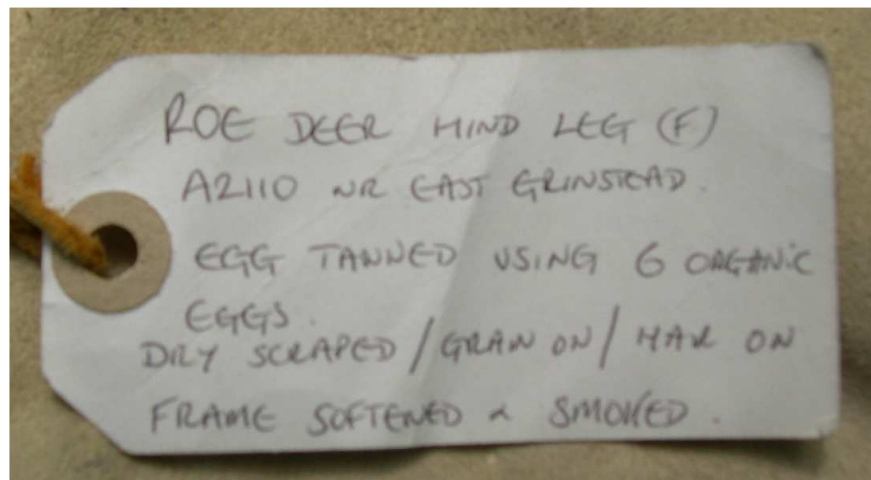 ROE DEER HIND LEG (F)
A2110 NR EAST GRINSTEAD.
EGG TANNED USING 6 ORGANIC
EGGS.
DRY SCRAPED / GRAIN ON / HAIR ON
FRAME SOFTENED & SMOKED.